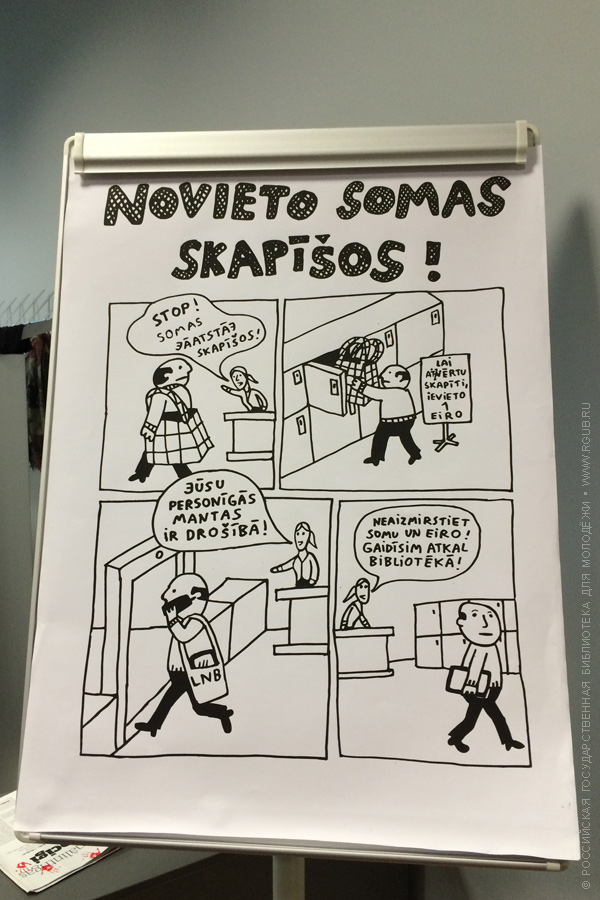 NOVIETO SOMAS
SKAPĪŠOS!
STOP!
SOMAS
JĀATSTĀJ
SKAPĪŠOS!
LAI
AIZVĒRTU
SKAPĪTI,
IEVIETO
1
EIRO
JŪSU
PERSONĪGĀS
MANTAS
IR DROŠĪBĀ!
LNB
NEAIZMIRSTIET
SOMU UN EIRO!
GAIDĪSIM ATKAL
BIBLIOTĒKĀ!
© РОССИЙСКАЯ ГОСУДАРСТВЕННАЯ БИБЛИОТЕКА ДЛЯ МОЛОДЁЖИ • WWW.RGUB.RU